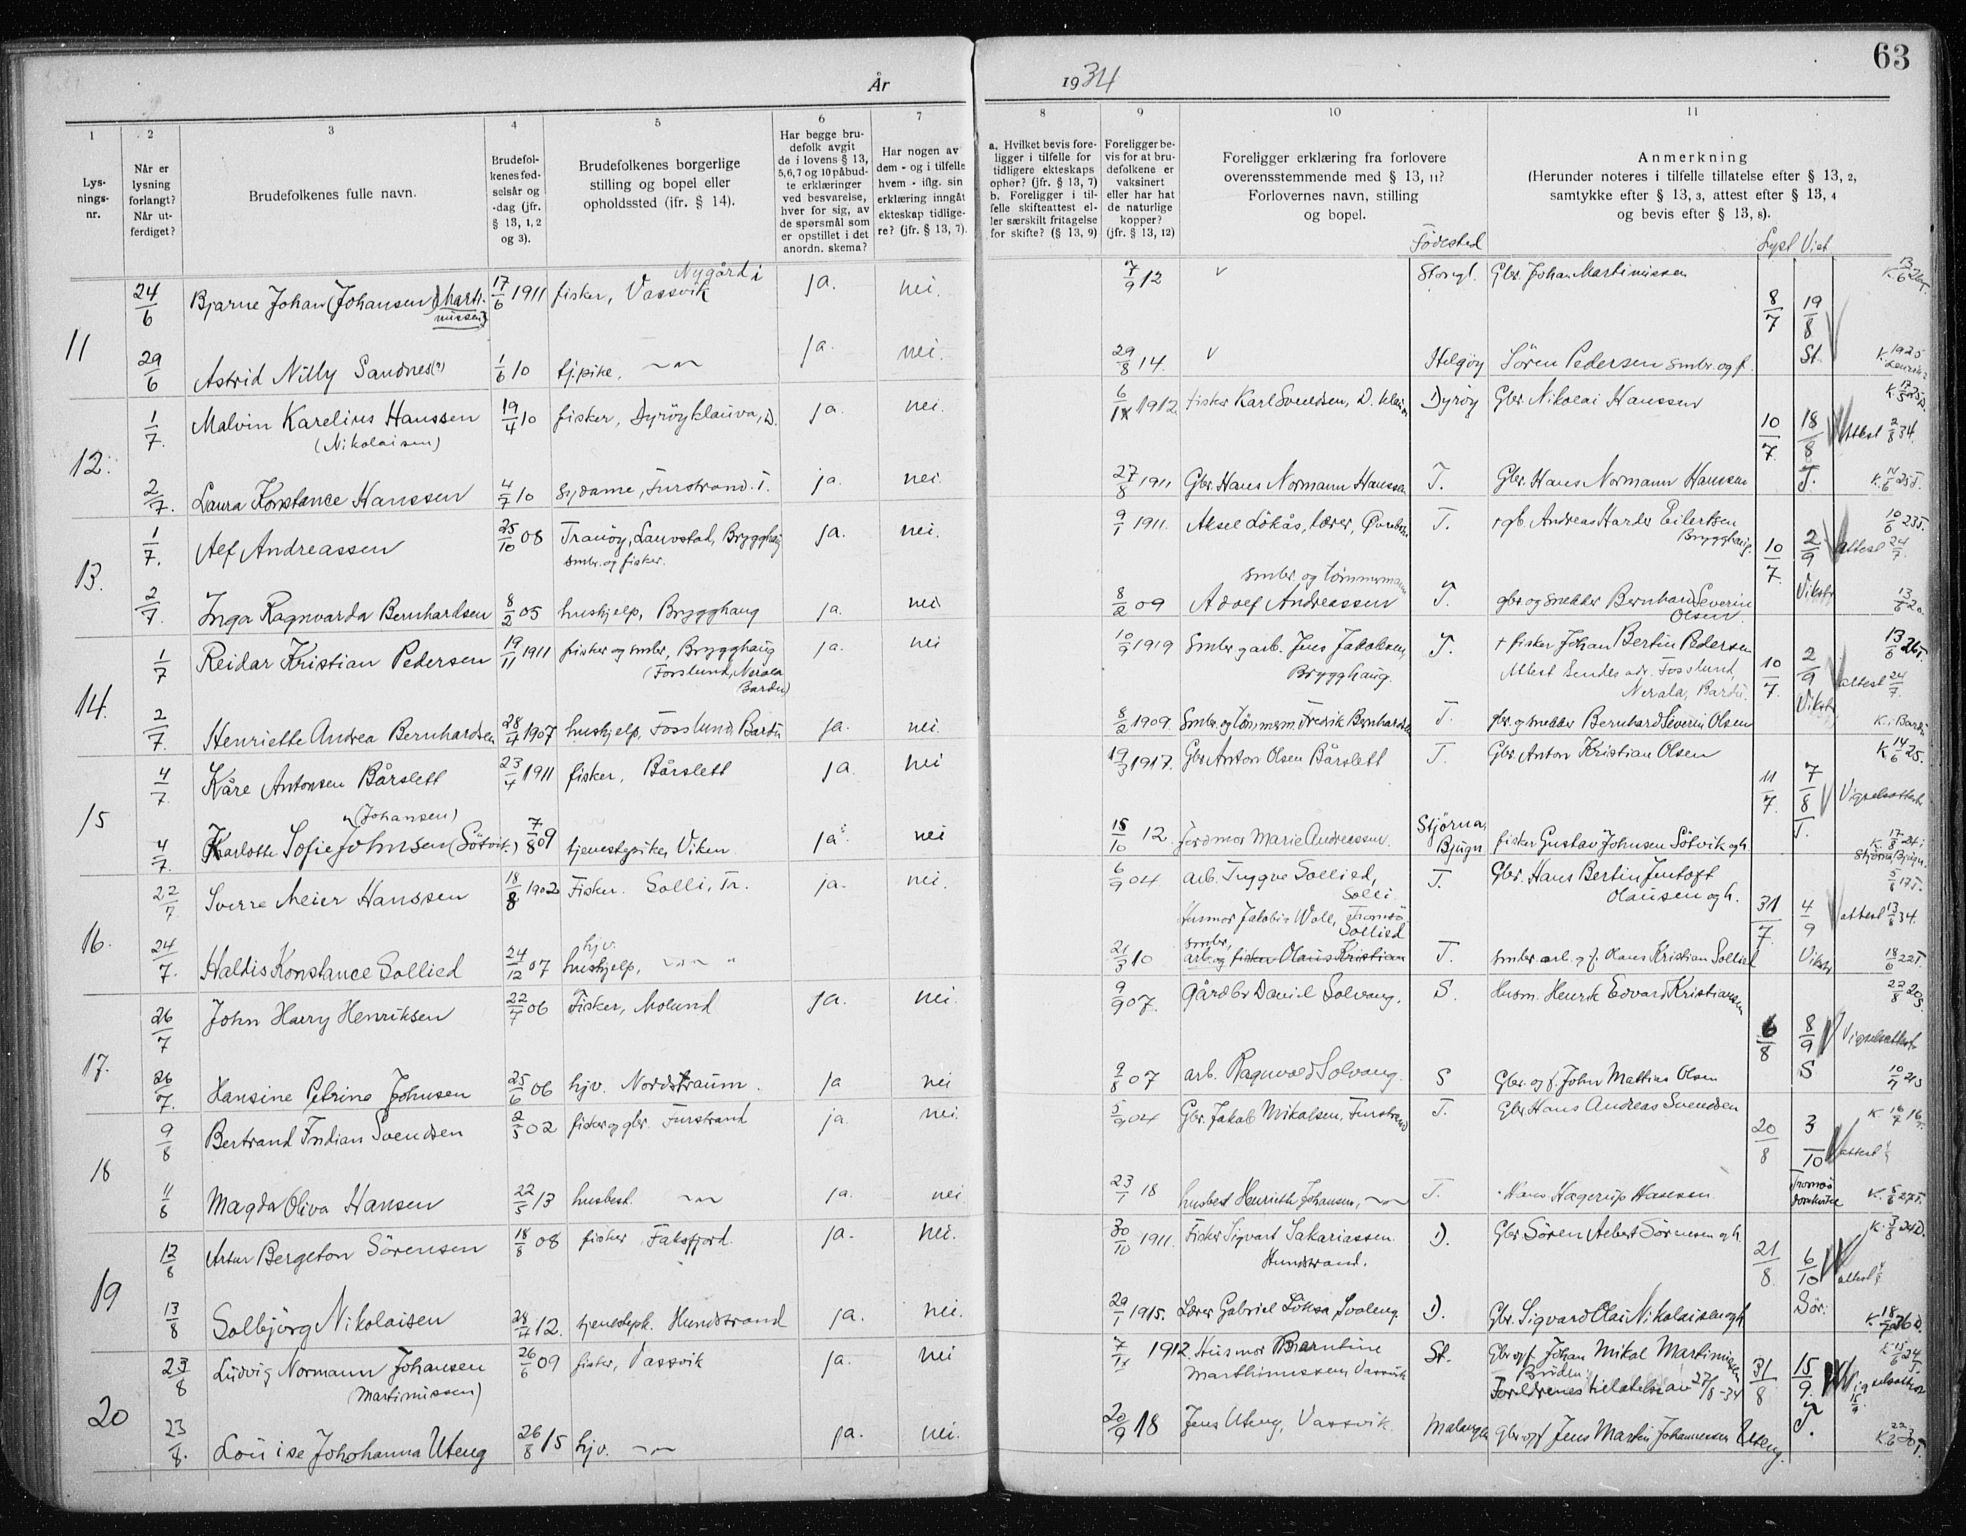 63
År 1934
1 2 3 4 5 6 7 8 9 10 11
Lys-
nings-
nr.
Når er
lysning
forlangt?
Når ut-
ferdiget?
Brudefolkenes fulle navn.
Brudefol-
kenes fød-
selsår og
-dag (jfr.
§ 13, 1, 2
og 3).
Brudefolkenes borgerlige
stilling og bopel eller
opholdssted (jfr. § 14).
Har begge bru-
defolk avgit
de i lovens § 13,
5,6,7 og 10 påbud-
te erklæringer
ved besvarelse,
hver for sig, av
de spørsmål som
er opstillet i det
anordn. skema?
Har nogen av
dem - og i tilfelle
hvem - iflg. sin
erklæring inngått
ekteskap tidlige-
re? (jfr. § 13, 7).
a. Hvilket bevis fore-
ligger i tilfelle for
tidligere ekteskaps
ophør? (jfr. § 13, 7)
b. Foreligger i til-
felle skifteattest el-
ler særskilt fritagelse
for skifte? (§ 13, 9)
Foreligger be-
vis for at bru-
defolkene er
vaksinert
eller har hat
de naturlige
kopper?
(jfr. § 13, 12)
Foreligger erklæring fra forlovere
overensstemmende med § 13, 11?
Forlovernes navn, stilling
og bopel.
Fødested
Anmerkning
(Herunder noteres i tilfelle tillatelse efter § 13, 2,
samtykke efter § 13, 3, attest efter § 13, 4
og bevis efter § 13, 8).
Lyst Viet
11
24/6 Bjarne Johan (Johansen) Marti- 17/6 1911 fisker, Vassvik Nygård i ja. nei. 7/9 12 v Gbr. Johan Martinussen 8/7 19/8
nussen
29/6 Astrid Nilly Sandnes 1/6 10 tj.pike. ja. nei. 29/8 14. v Helgøy Sören Pedersen smbr. og f. St.
12.
1/7. Malvin Karelius Hanssen 19/4 10 fisker, Dyröyklauva, D. ja. nei. 1912. fisker Karl Svendsen, D. Dyröy Gbr. Nikolai Hanssen 10/7. 18/8 Attest 2/8 34.
(Nikolaisen)
2/7. Laura Konstance Hanssen 4/7 10 sydame, Furstrand. T. ja. nei. 27/8 1911 Gbr. Hans Normann Hanssen T. Gbr. Hans Normann Hanssen T.
13.
1/7. Alf Andreassen 25/10 08 Tranöy, Lauvstad, Brygghaug ja. nei. 9/1 1911. Aksel Lökås, lærer, T. + gb. Andreas Harder Eilertsen 10/7. 2/9 attest 24/7.
smbr. og fisker.
Brygghaug.
smbr. og tömmermann
2/7. Inga Ragnvarda Bernhardsen 8/2 05 hushjelp, Brygghaug ja. nei 8/2 09 Adolf Andreassen T. gbr. og snekker Bernhard Severin
Olsen.
14.
1/7 Reidar Kristian Pedersen 19/11 1911 fisker og smbr, Brygghaug ja. nei 1919 Smbr. og arb. Jens Jakobsen, T. + fisker Johan Bertin Pedersen 10/7. 2/9 attest 24/7.
(Fosslund, Nerala Bardu)
Brygghaug.
Attest sendes adr. Fosslund,
Nerala, Bardu.
2/7. Henriette Andrea Bernhardsen 28/4 1907 hushjelp, Fosslund, Bardu ja. nei. 8/2 1909. Smbr. og tömmerm. Fredrik Bernhardsen T. gbr. og snekker Bernhard Severin Olsen K. i Bardu
15
4/7. Kåre Antonsen Bårslett 23/4 1911 fisker, Bårslett ja. nei 19/3 1917. Gbr. Anton Olsen Bårslett T. Gbr. Anton Kristian Olsen 11/7. 7/8 Vigselsattest K 14/6 25.
(Johansen)
4/7. Karlotte Sofie Johnsen (Sötvik.) 7/8 09 tjenestepike, Viken ja nei 15/10 12. Jordmor Marie Andreassen. Stjörna, Bjugn fisker Gustav Johnsen Sötvik og h. T.
16.
22/7 Sverre Meier Hanssen 18/8 1902 Fisker. Solli, Tr. ja. nei. 6/9 04 arb. Tryggve Sollied, T. Gbr. Hans Bertin Jentoft 31/7 4/9 attest 13/8 34.
Solli.
Olausen og h.
Husmor Jakobie Voll, Tromsö.
24/7. Haldis Konstance Sollied 24/12 07 hushjelp, hjv. 21/3 10 smbr, arb. og fisker Olaus Kristian Sollied T. smbr. arb. og f. Olaus Kristian Sollied
17.
26/7 John Harry Henriksen 22/7 06 Fisker, Molund ja. nei. 9/9 07. Gårdbr Daniel Solvang. S. Husm. Henrik Edvard Kristiansen 6/8 8/9 Vigselsattest
26/7. Hansine Petrine Johnsen 25/6 06 hjv. Nordstraum. ja nei 9/8 07 arb. Ragnvald Solvang. S Gbr. og f. John Mattias Olsen S
18
9/8 Bertrand Indian Svendsen 2/5 02 fisker og gbr. Furstrand ja. nei 5/9 04 Gbr. Jakob Mikalsen, Furstrand T. Gbr. Hans Andreas Svendsen 20/8 3/10 attest
11/8 Magda Oliva Hansen 22/5 13 husbest. ja. nei 23/1 18 husbest Henriette Johansen, T. Hans Hagerup Hansen. Tromsö domkirke
19
12/8 Artur Bergeton Sörensen 18/8 08 fisker Faksfjord. ja. nei. 30/10 1911. Fisker Sigvart Sakariassen D. Gbr. Sören Albert Sörensen og h. 21/8. 6/10 attest
Hundstrand.
13/8 Solbjörg Nikolaisen 28/4 12. tjenestepk. Hundstrand ja. nei. 29/1 1915. Lærer Gabriel Löksa, D. Gbr. Sigvard Olai Nikolaisen og h Sör:
20
23/8 Ludvig Normann Johansen 26/6 09 fisker, Vassvik ja. nei 1912. Husmor Berntine St. Gbr og f. Johan Mikal Martinussen 31/8 15/9. Vigselsattest
(Martinussen)
Marthinussen, Vassvik
Bruden
Foreldrenes tillatelse av 27/8 -34
23/8. Louise Johohanna Uteng 26/8 15 hjv. ja. nei. 20/9 18 Jens Uteng, Vassvik. Malangen Gbr. og f Jens Martin Johannessen Uteng. T.